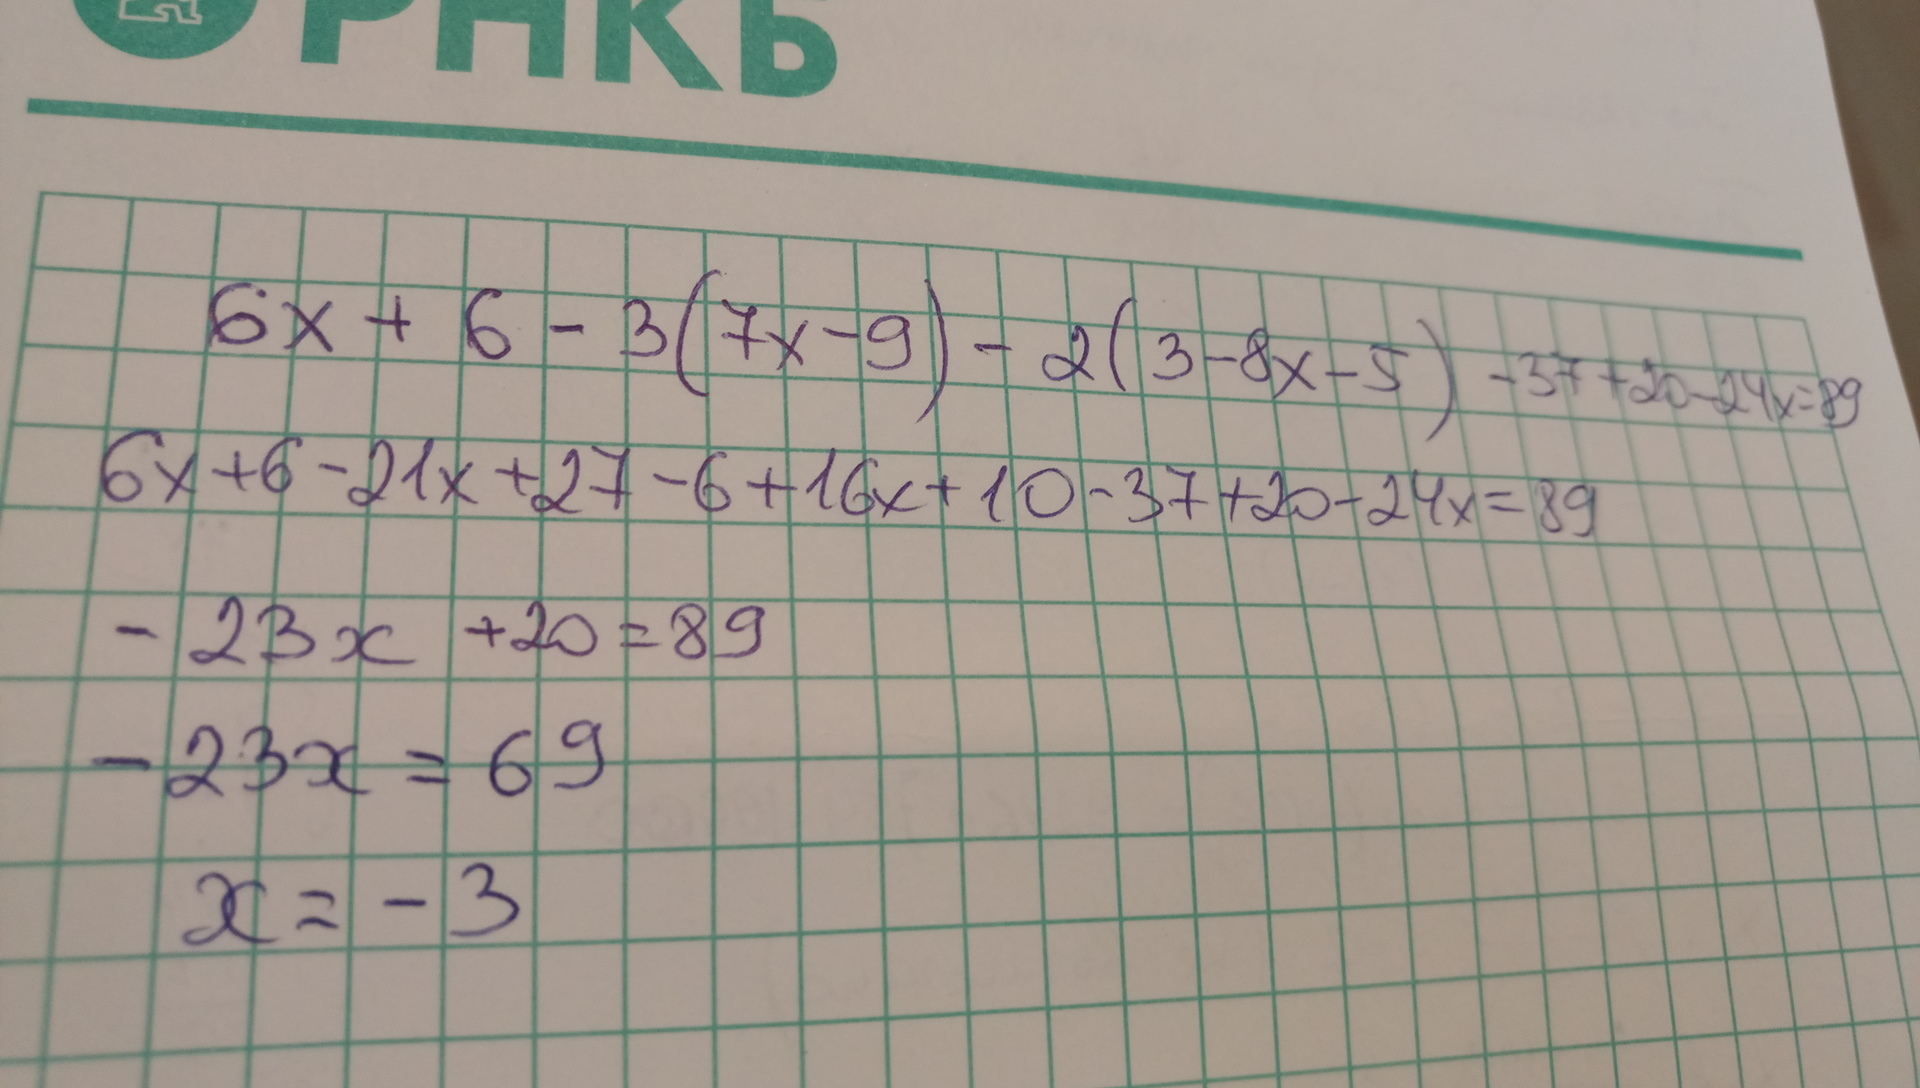 РНКБ
6x + 6 - 3(7x - 9) - 2(3 - 8x - 5) - 37 + 20 - 24x = 89
6x + 6 - 21x + 27 - 6 + 16x + 10 - 37 + 20 - 24x = 89
- 23x + 20 = 89
- 23x = 69
x = - 3